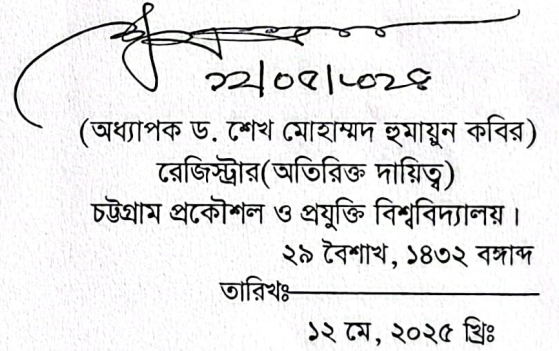 ১২/০৫/২০২৫
(অধ্যাপক ড. শেখ মোহাম্মদ হুমায়ুন কবির)
রেজিস্ট্রার(অতিরিক্ত দায়িত্ব)
চট্টগ্রাম প্রকৌশল ও প্রযুক্তি বিশ্ববিদ্যালয়।
২৯ বৈশাখ, ১৪৩২ বঙ্গাব্দ
তারিখঃ
১২ মে, ২০২৫ খ্রিঃ